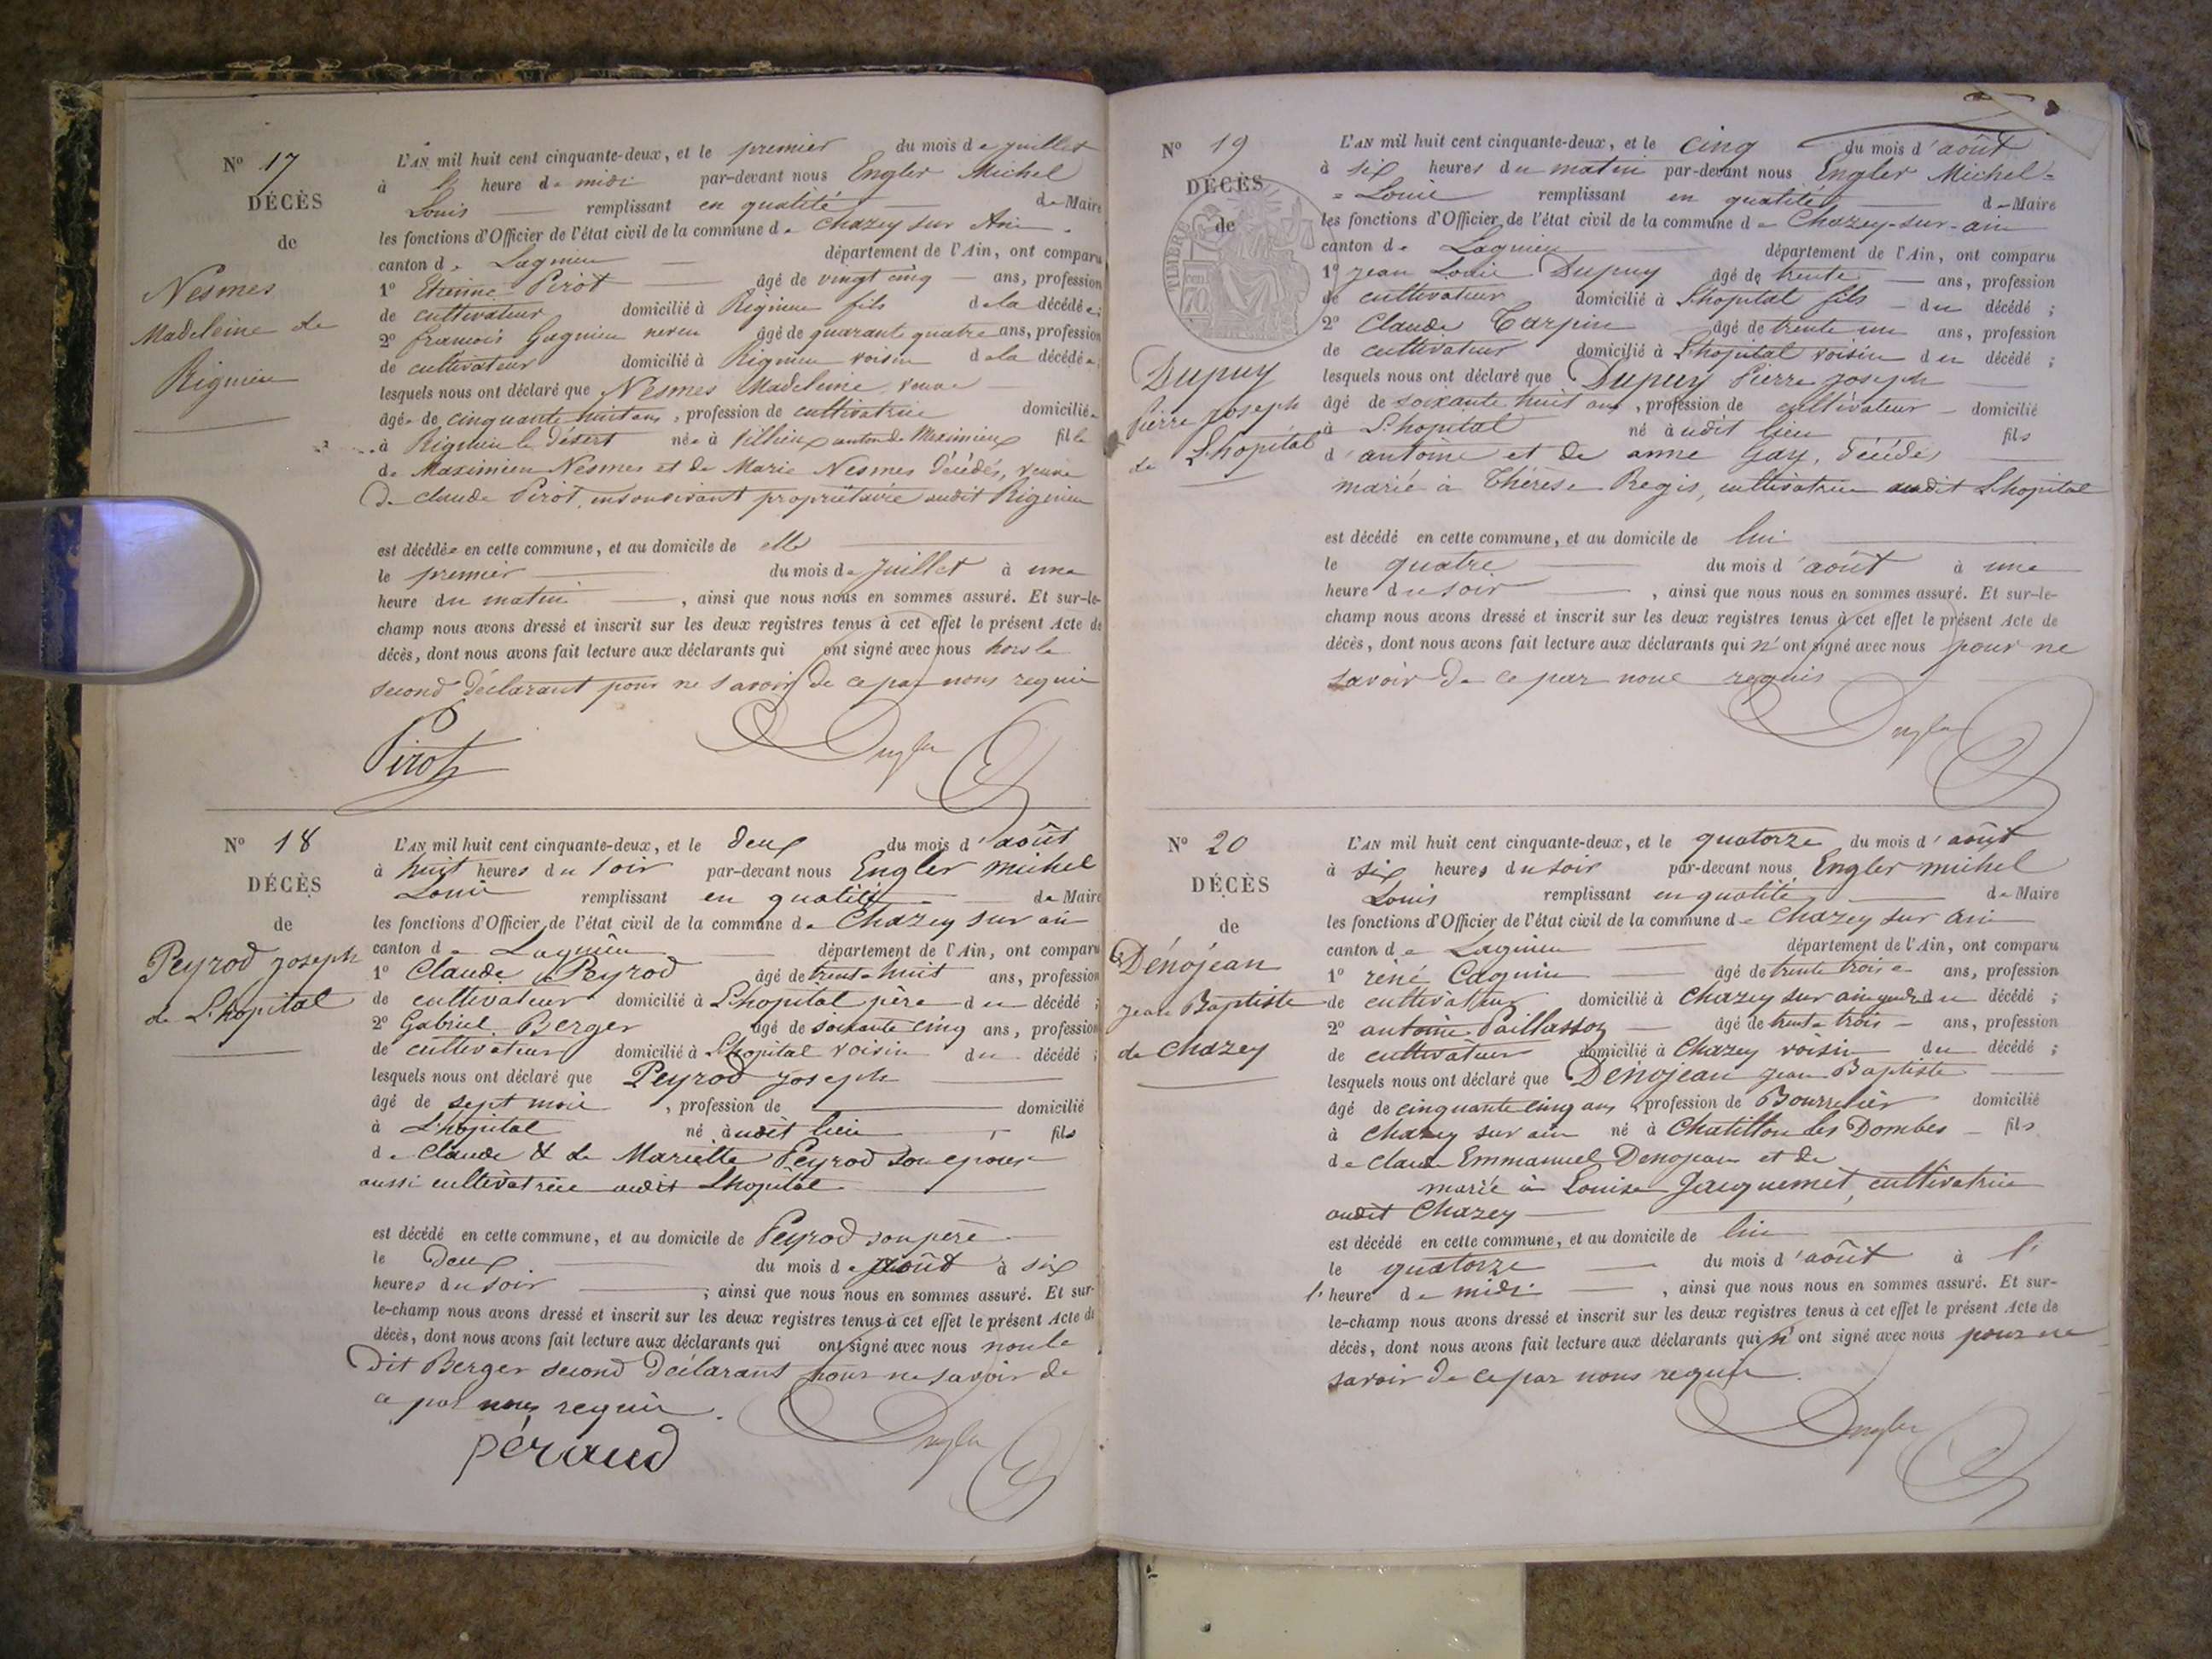 N° 17
DÉCÈS
de
Nesmes
Madeleine de
Rignieu
L'AN mil huit cent cinquante-deux, et le premier du mois de juillet
à l' heure de midi par-devant nous Engler Michel
Louis remplissant en qualité de Maire
les fonctions d'Officier de l'état civil de la commune de Chazey sur Ain
canton de Lagnieu département de l'Ain, ont comparu
1° Etienne Pirot âgé de vingt cinq ans, profession
de cultivateur domicilié à Rignieu fils de la décédée;
2° francois Gagnieu neveu âgé de quarante quatre ans, profession
de cultivateur domicilié à Rignieu voisin de la décédée;
lesquels nous ont déclaré que Nesmes Madeleine, veuve
âgée de cinquante huit ans, profession de cultivatrice domiciliée
à Rignieu le désert née à Villieux canton de Meximieux fille
de Maximien Nesmes et de Marie Nesmes décédés, veuve
de claude Pirot, en son vivant propriétaire audit Rignieu
est décédée en cette commune, et au domicile de elle
le premier du mois de juillet à une
heure du matin, ainsi que nous nous en sommes assuré. Et sur-le-
champ nous avons dressé et inscrit sur les deux registres tenus à cet effet le présent Acte de
décès, dont nous avons fait lecture aux déclarants qui ont signé avec nous hors le
second déclarant pour ne savoir de ce par nous requis
Pirot Engler
N° 18
DÉCÈS
de
Peyrod joseph
de L'hopital
L'AN mil huit cent cinquante-deux, et le deux du mois d'août
à huit heures du soir par-devant nous Engler michel
Louis remplissant en qualité de Maire
les fonctions d'Officier de l'état civil de la commune de Chazey sur ain
canton de Lagnieu département de l'Ain, ont comparu
1° Claude Peyrod âgé de trente huit ans, profession
de cultivateur domicilié à L'hopital père du décédé;
2° Gabriel Berger âgé de soixante cinq ans, profession
de cultivateur domicilié à L'hopital voisin du décédé;
lesquels nous ont déclaré que Peyrod joseph
âgé de sept mois, profession de domicilié
à L'hopital né audit lieu fils
de Claude & de Mariette Peyrod son epouse
aussi cultivatrice audit Lhopital
est décédé en cette commune, et au domicile de Peyrod son père
le Deux du mois d'août à six
heures du soir; ainsi que nous nous en sommes assuré. Et sur-
le-champ nous avons dressé et inscrit sur les deux registres tenus à cet effet le présent Acte de
décès, dont nous avons fait lecture aux déclarants qui ont signé avec nous non le
dit Berger second déclarant pour ne savoir de
ce par nous requis.
péraud Engler
N° 19
DÉCÈS
de
TIMBRE
Dupuy
pierre joseph
de L'hopital
L'AN mil huit cent cinquante-deux, et le cinq du mois d'août
à six heures du matin par-devant nous Engler Michel-
= Louis remplissant en qualité de Maire
les fonctions d'Officier de l'état civil de la commune de Chazey-sur-ain
canton de Lagnieu département de l'Ain, ont comparu
1° jean Louis Dupuy âgé de trente ans, profession
de cultivateur domicilié à L'hopital fils du décédé;
2° Claude Carpin âgé de trente un ans, profession
de cultivateur domicilié à L'hopital voisin du décédé;
lesquels nous ont déclaré que Dupuy Pierre joseph
âgé de soixante huit ans, profession de cultivateur domicilié
à L'hopital né audit lieu fils
d'antoine et de anne Gay, décédés
marié à Thérèse Regis, cultivatrice audit Lhopital
est décédé en cette commune, et au domicile de lui
le quatre du mois d'août à une
heure du soir, ainsi que nous nous en sommes assuré. Et sur-le-
champ nous avons dressé et inscrit sur les deux registres tenus à cet effet le présent Acte de
décès, dont nous avons fait lecture aux déclarants qui n'ont signé avec nous pour ne
savoir de ce par nous requis
Engler
N° 20
DÉCÈS
de
Dénojean
jean Baptiste
de Chazey
L'AN mil huit cent cinquante-deux, et le quatorze du mois d'août
à six heures du soir par-devant nous Engler michel
Louis remplissant en qualité de Maire
les fonctions d'Officier de l'état civil de la commune de Chazey sur ain
canton de Lagnieu département de l'Ain, ont comparu
1° réné Cagnin âgé de trente trois ans, profession
de cultivateur domicilié à Chazey sur ain du décédé;
2° antoine Paillasson âgé de trente trois ans, profession
de cultivateur domicilié à Chazey voisin du décédé;
lesquels nous ont déclaré que Dénojean jean Baptiste
âgé de cinquante cinq ans, profession de Bourrelier domicilié
à Chazey sur ain né à Chatillon les Dombes fils
de claude Emmanuel Denojean et de
marié à Louise Jacquemet, cultivatrice
audit Chazey
est décédé en cette commune, et au domicile de lui
le quatorze du mois d'août à l'
l'heure de midi, ainsi que nous nous en sommes assuré. Et sur-
le-champ nous avons dressé et inscrit sur les deux registres tenus à cet effet le présent Acte de
décès, dont nous avons fait lecture aux déclarants qui n'ont signé avec nous pour ne
savoir de ce par nous requis.
Engler